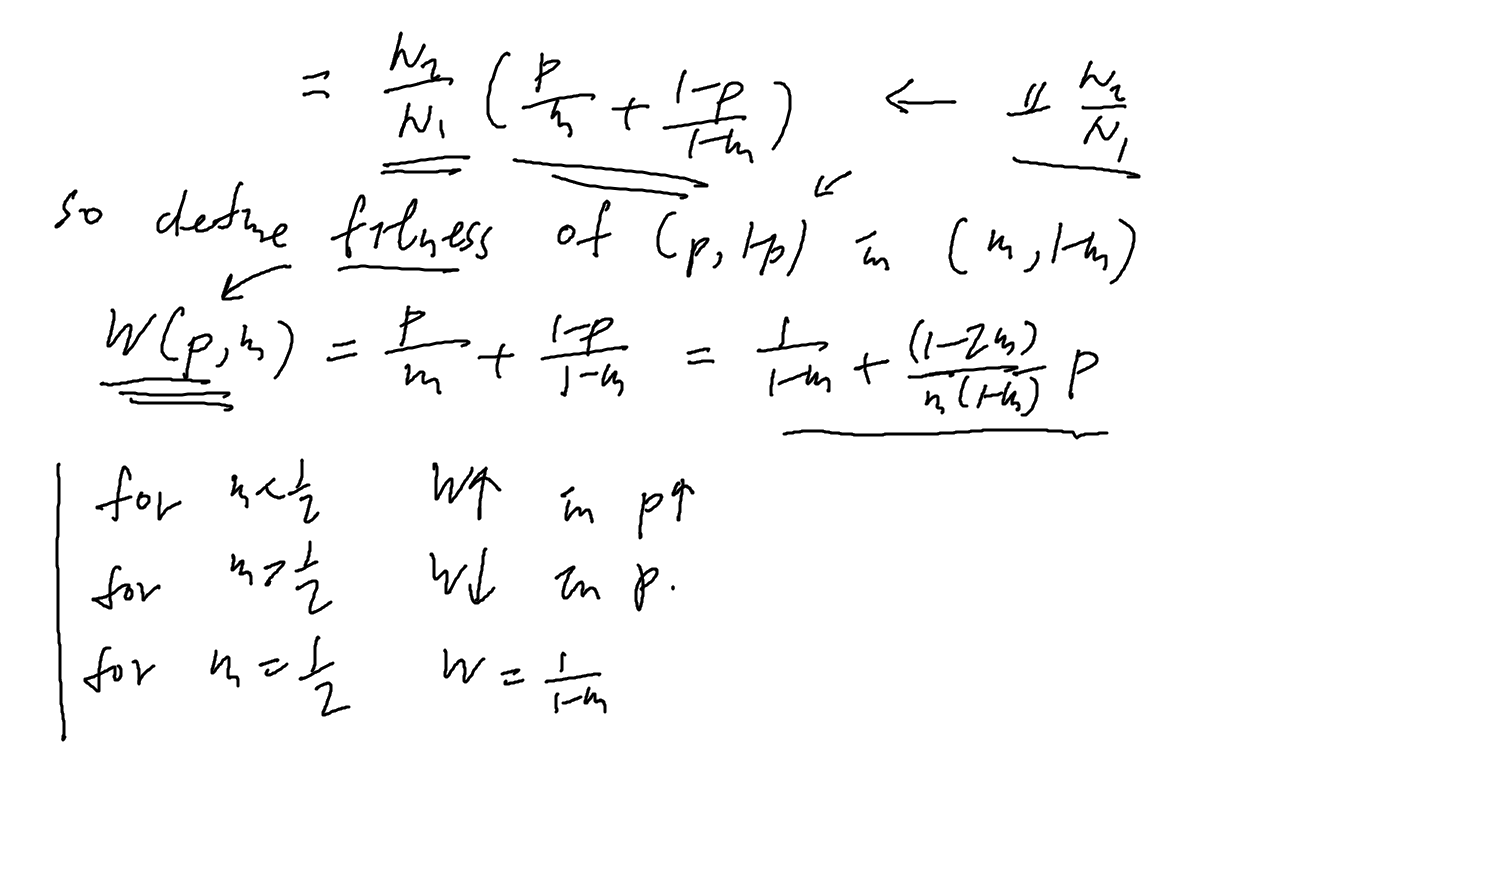 = N₂/N₁ (p/m + (1-p)/(1-m)) ← 〃 N₂/N₁
so define fitness of (p, 1-p) in (m, 1-m)
W(p,m) = p/m + (1-p)/(1-m) = 1/(1-m) + (1-2m)/(m(1-m)) p
for m < 1/2 W↑ in p↑
for m > 1/2 W↓ in p.
for m = 1/2 W = 1/(1-m)